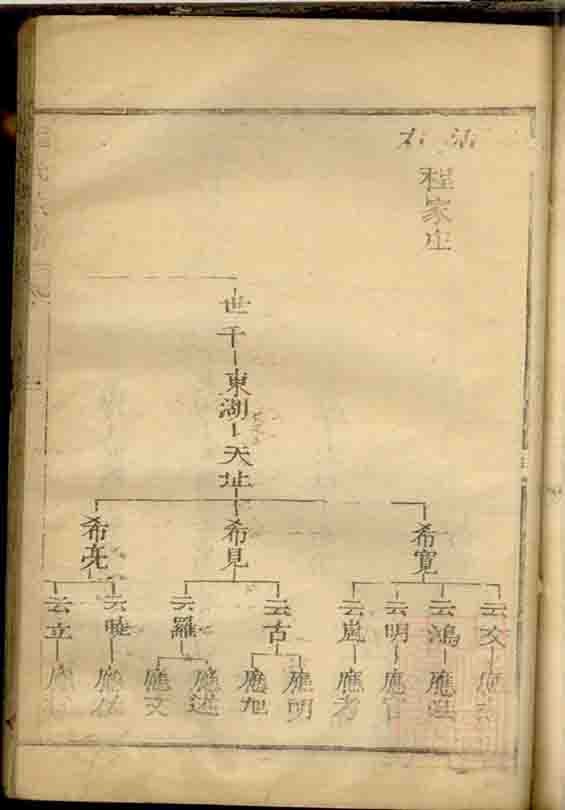 程家庄
世千
東湖
天址
希寬
希見
希亮
云文
云鴻
云明
云嵐
云古
云羅
云曉
云立
應
應
應官
應考
應明
應旭
應述
應文
應